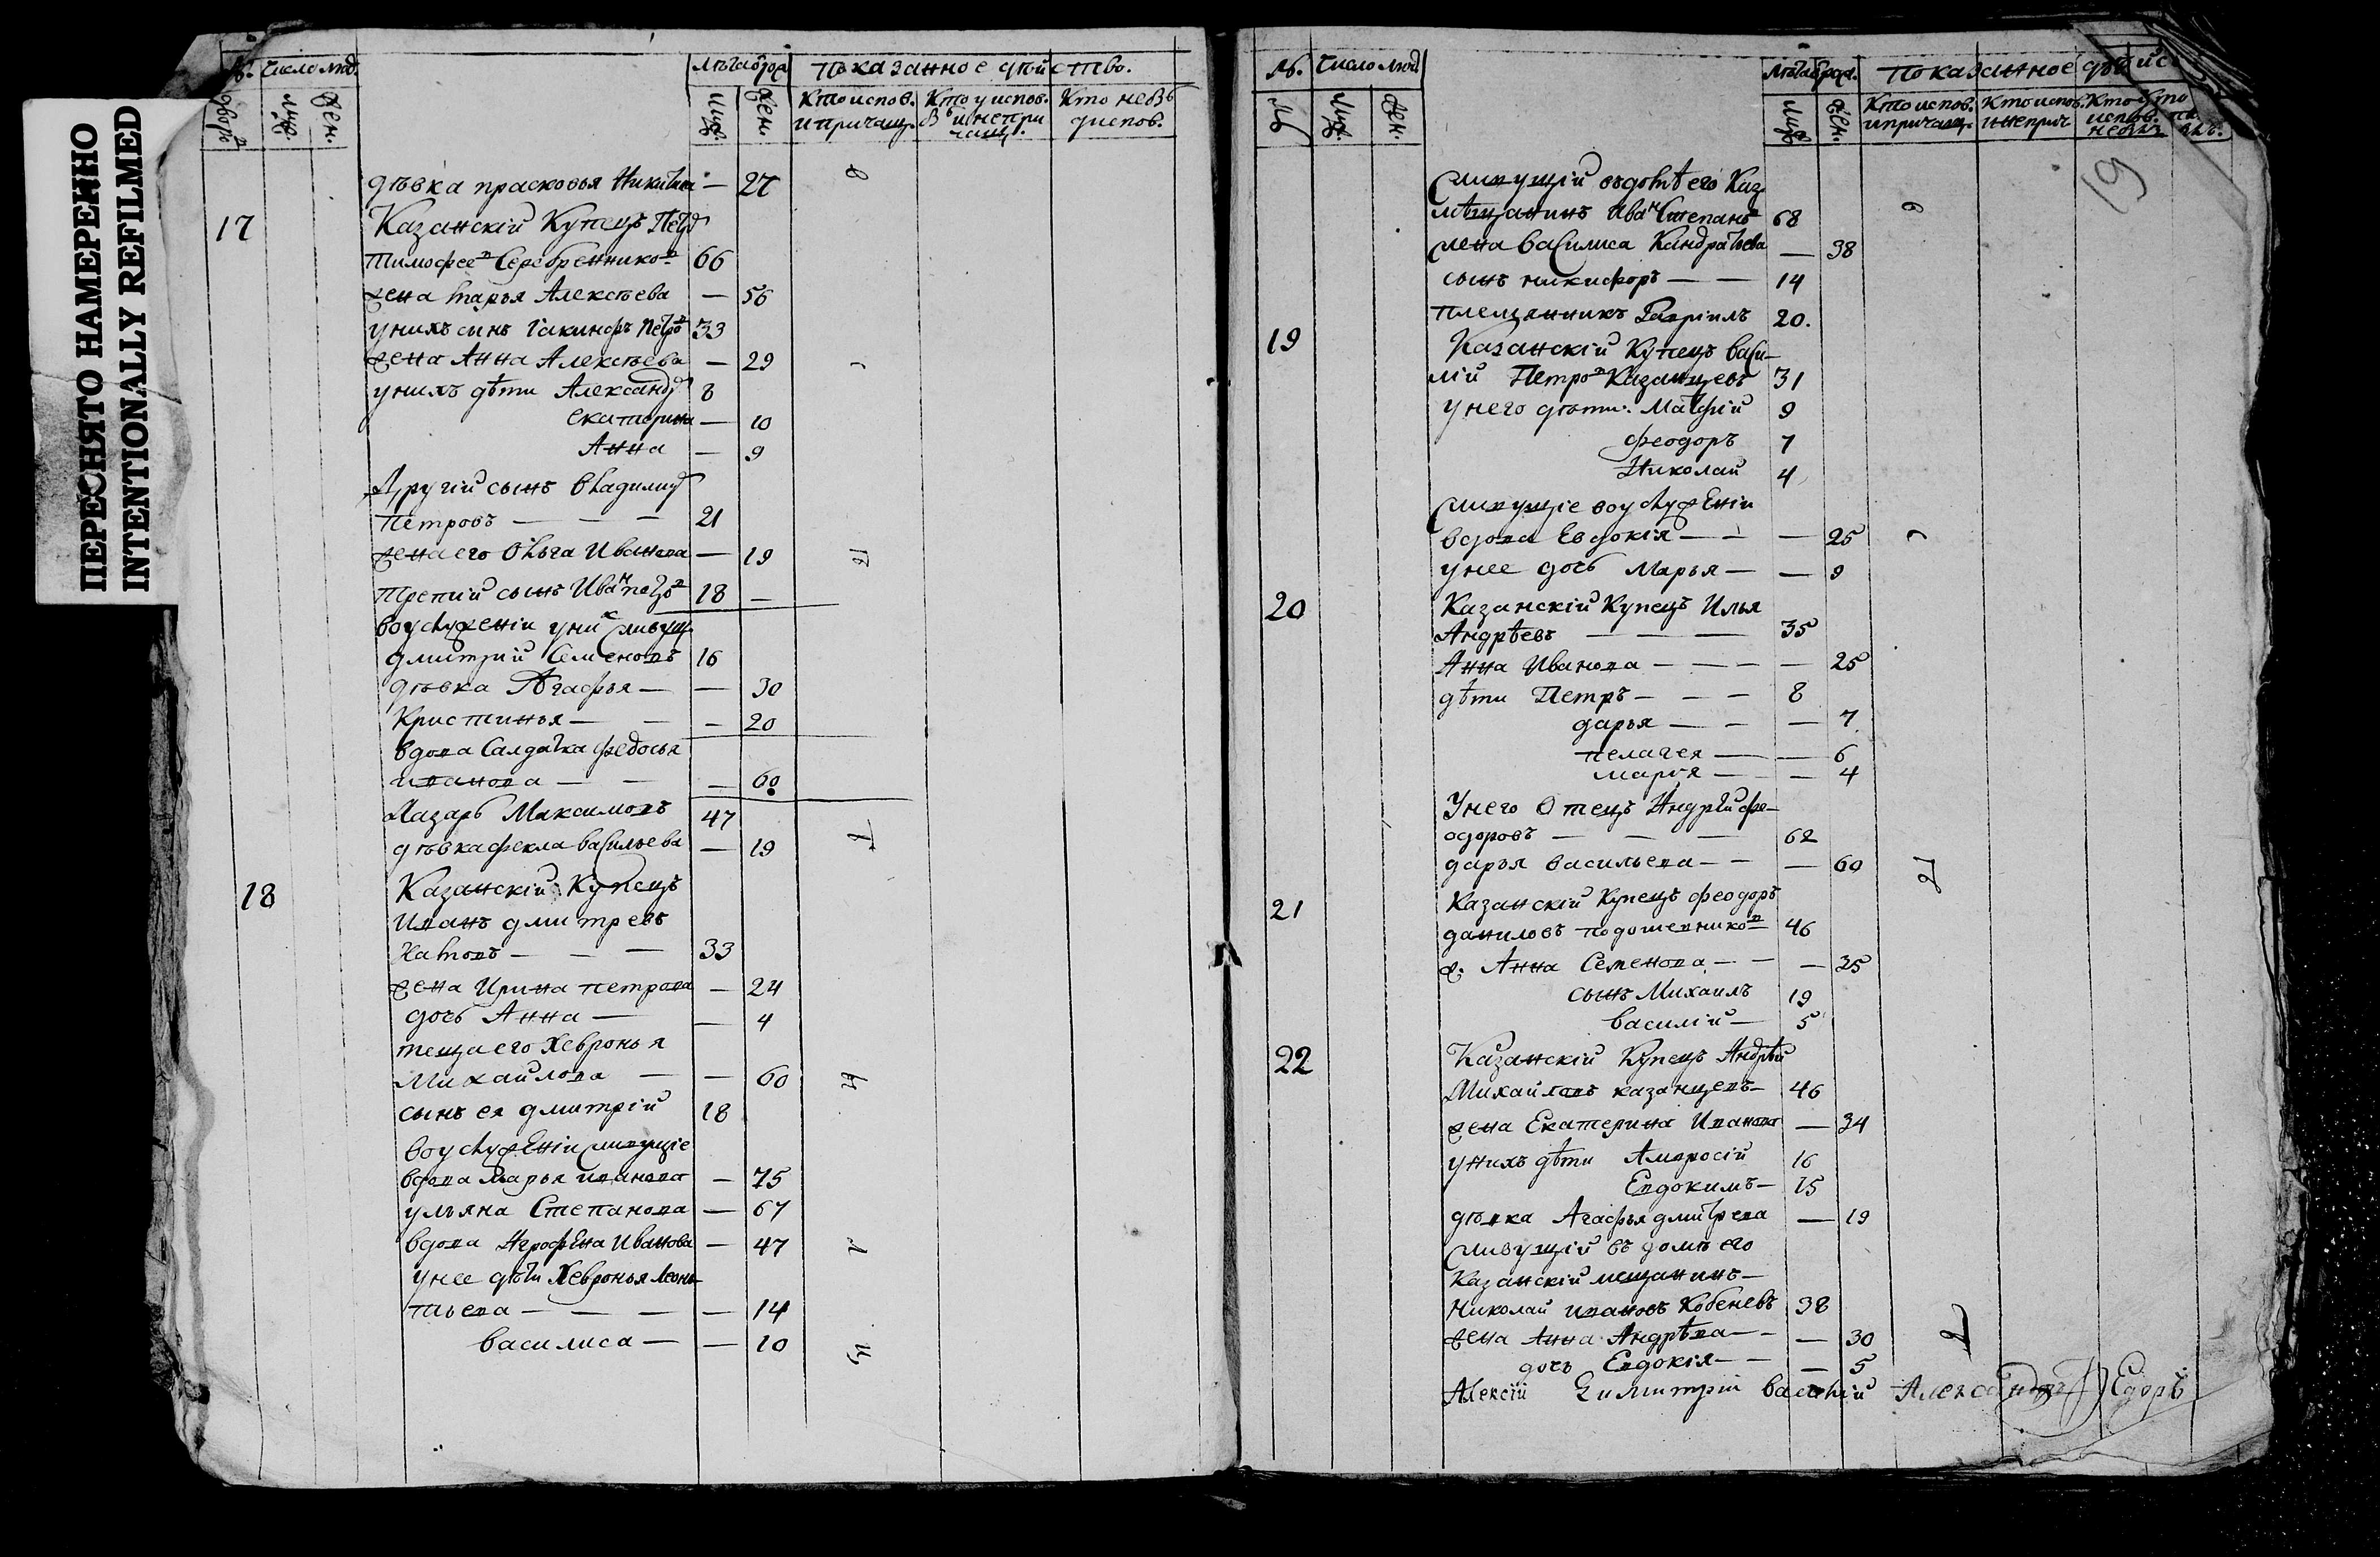 ПЕРЕСНЯТО НАМЕРЕННО
INTENTIONALLY REFILMED
№. Число люд.
Лѣта от рож.
показанное дѣйство.
дворо
муж.
жен.
муж.
жен.
Кто испов. и причащ.
Кто у испов. и не при чащ.
Кто не въ у испов.
дѣвка прасковья Никитина — 27
17 Казанскій Купецъ Петр
Тимофеев Серебренников 66
жена марья Алексѣева — 56
у нихъ сынъ Іакинфъ Петров 33
жена Анна Алексѣева — 29
у нихъ дѣти Александр 8
екатерина — 10
Анна — 9
Другій сынъ владимир
Петровъ — — — 21
жена его Ольга Иванова — 19
третий сынъ Иван 18 —
во услуженіи у них живущ
дмитрий Семеновъ 16
дѣвка Агафья — — 30
Кристинья — — — 20
вдова Салдатка федосья
иванова — — — 60
Лазарь Максимовъ 47
дѣвка фекла васильева — 19
18 Казанскій Купецъ
Иванъ дмитревъ
— — — 33
жена Ирина петрова — 24
дочь Анна — — 4
теща его Хевронья
Михайлова — — 60
сынъ ея дмитрій 18
во услуженіи живущіе
вдова Марья иванова — 75
ульяна Степанова — 67
вдова Агрофена Иванова — 47
у нее дѣти Хевронья Леонь-
тьева — — — — 14
василиса — — 10
№. Число люд.
Лѣта от рож.
показанное дѣйс
№
муж.
жен.
муж.
жен.
Кто испов. и причащ.
Кто испов. и не прич
Кто испов. не
19
живущій въ домѣ его Каз
мѣщанинъ Иван Степанъ 68
жена василиса Кандратьева — 38
сынъ никифоръ — — 14
племянникъ Гавріилъ 20.
19 Казанскій Купецъ васи-
лій Петров Казанцевъ 31
у него дѣти: Матфій 9
феодоръ 7
Николай 4
живущіе во услуженіи
вдова Евдокія — — — 25
у нее дочь Марья — — 9
20 Казанскій Купецъ Илья
Андрѣевъ — — — 35
Анна Иванова — — — — 25
дѣти Петръ — — — 8
дарья — — — 7
пелагея — — 6
марья — — 4
У него Отецъ Андрѣй фе-
одоровъ — — — 62
дарья васильева — — — 60
21 Казанскій Купецъ феодоръ
даниловъ подошевников 46
ж. Анна Семенова — — — 35
сынъ Михаилъ 19
василій — 5
22 Казанскій Купецъ Андрѣй
Михайловъ казанцевъ — 46
жена Екатерина Иванова — 34
у нихъ дѣти Амвросій 16
Евдокимъ — 15
дѣвка Агафья дмитрева — 19
живущій въ домѣ его
Казанскій мещанинъ —
Николай ивановъ Кобеневъ 38
жена Анна Андрѣва — — — 30
дочь Евдокія — — — 5
Алексій Димитрій василій Александръ Егоръ